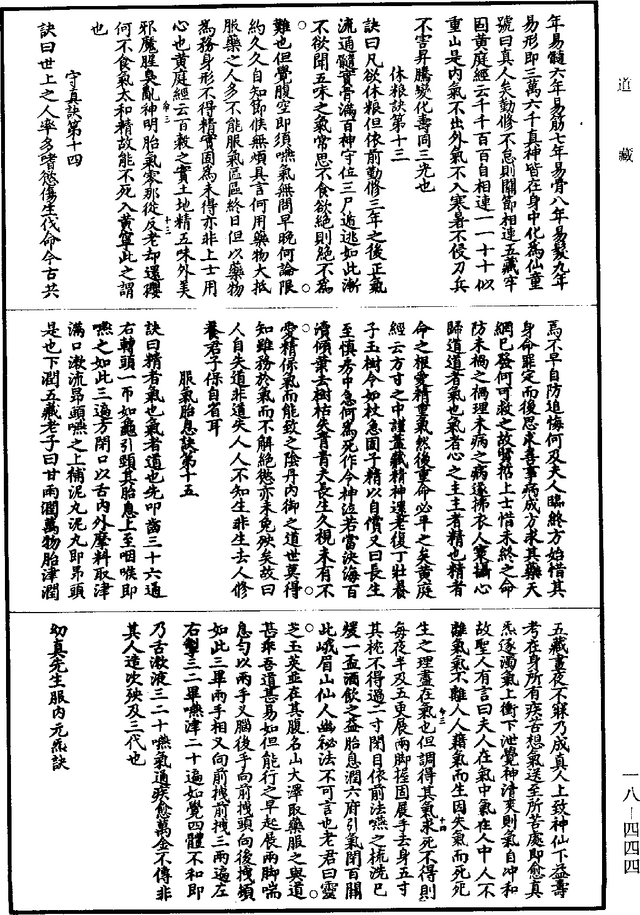 道藏
年易髓六年易筋七年易骨八年易髮九年
易形即三萬六千真神皆在身中化為仙童
號曰真人矣勤修不怠則關節相連五藏牢
固黃庭經云千千百百自相連一一十十似
重山是內氣不出外氣不入寒暑不侵刀兵
不害昇騰變化壽同三光也
休粮訣第十三
訣曰凡欲休粮但依前勤修三年之後正氣
流通髓實骨滿百神守位三尸遁逃如此漸
不欲聞五味之氣常思不食欲絕則絕不為
難也但覺腹空即須嚥氣無問早晚何論限
約久久自知節候無煩具言何用藥物大抵
服藥之人多不能服氣區區終日但以藥物
為務身形不得精實固為未得亦非上士用
心也黃庭經云百穀之實土地精五味外美
邪魔腥臭亂神明胎氣零那從反老却還嬰
何不食氣太和精故能不死入黃寧此之謂
也
守真訣第十四
訣曰世上之人率多嗜慾傷生伐命今古共
焉不早自防追悔何及夫人臨終方始惜其
身命罪定而後思求善事病成方求其藥天
網已發何可救之故賢哲上士惜未終之命
防未禍之禍理未病之病遂拂衣人寰攝心
歸道道者氣也氣者心之主主者精也精者
命之根愛精重氣然後重命必乎之矣黃庭
經云方寸之中謹蓋藏精神還老復丁壯養
子玉樹令如杖急固千精以自償又曰長生
至慎房中急何為死作令神泣若當決海百
瀆傾葉去樹枯失青青夫長生久視未有不
愛精保氣而能致之陰丹內御之道世莫得
知雖務於氣而不解絕慾亦未免殃矣故曰
人自失道非道失人人不知生非生去人修
養君子保自省耳
服氣胎息訣第十五
訣曰精者氣也氣者道也先叩齒三十六通
右轉頭一帀如龜引頸其胎息上至咽喉即
嚥之如此三遍方閉口以舌內外摩料取津
滿口漱流昂頭嚥之上補泥丸泥丸即昂頭
是也下潤五藏老子曰甘雨潤萬物胎津潤
五藏晝夜不寐乃成真人上致神仙下益壽
考在身所有疾苦想氣送至所苦處即愈真
炁逐濁氣上衝下泄覺神清爽則氣自沖和
故聖人有言曰夫人在氣中氣在人中人不
離氣氣不離人人藉氣而生因失氣而死死
生之理盡在氣也但調得其氣求死不得則
每夜半及五更展兩脚握固展手去身五寸
其枕不得過二寸閉目依前法嚥之梳洗已
煖一盃酒飲之益胎息潤六府引氣閉百關
此峨眉山仙人幽秘法不可言也老君曰靈
芝玉英並在其腹名山大澤取藥服之與道
甚乖吾道甚易如但能行之早起展兩脚喘
息匀以兩手叉腦後手向前拽頭向後拽頻
如此三畢兩手相叉向前拽前拽三兩遍左
右掣三二畢嚥津二十遍如覺四體不和即
乃舌漱液三二十嚥氣通疾愈萬金不傳非
其人造次殃及三代也
幻真先生服內元炁訣
一八－四四四